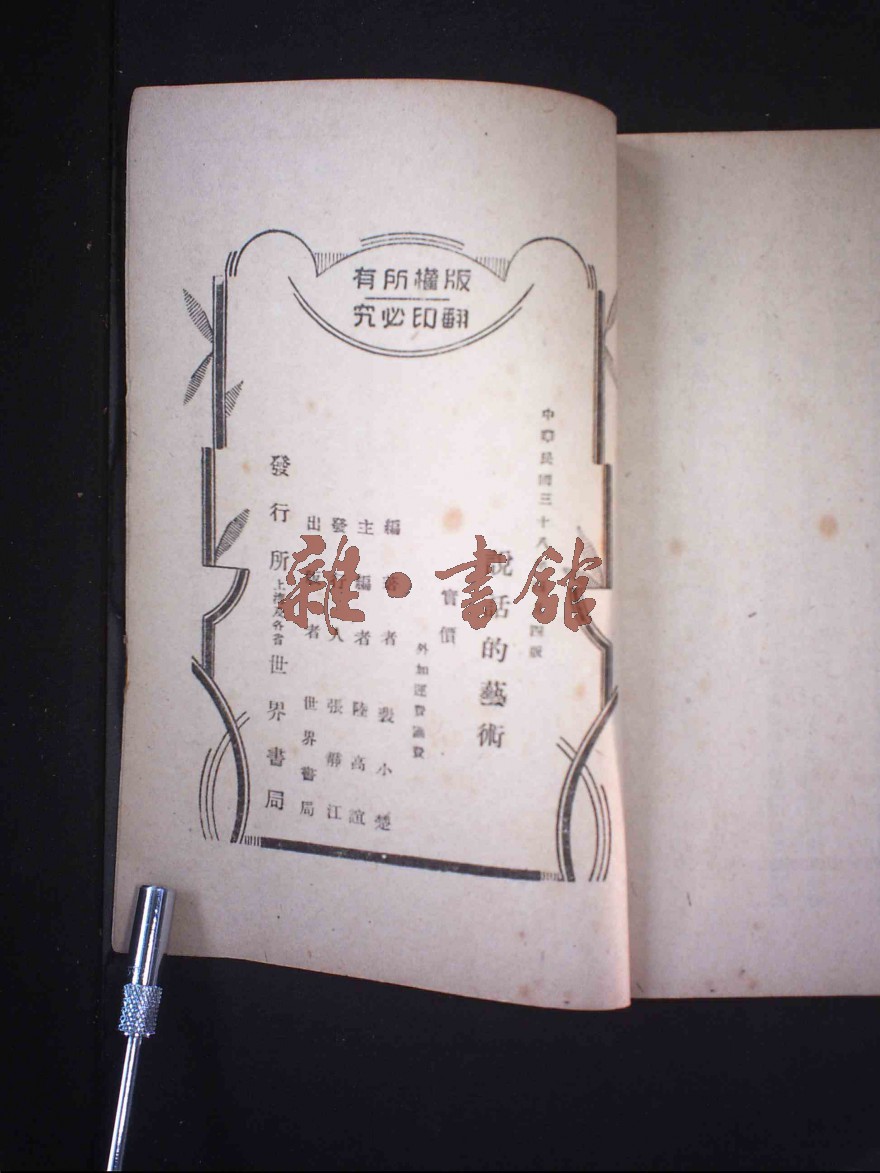 版權所有
翻印必究
中華民國三十八 四版
說話的藝術
實價
外加運費滙費
編著者 裴小楚
主編者 陸高誼
發行人 張靜江
出版者 世界書局
發行所 上海及各省 世界書局
雜·書館